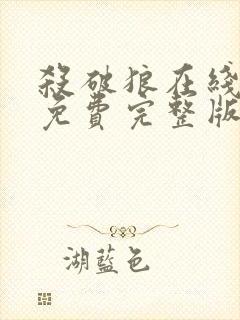 殺破狼在綫
免費完整版
湖藍色